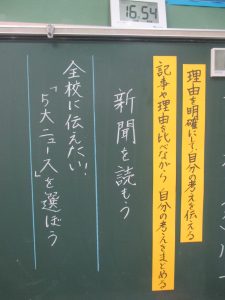 16:54
理由を明確にして、自分の考えを伝える
記事や理由を比べながら 自分の考えをまとめる
新聞を読もう
全校に伝えたい!
「5大ニュース」を選ぼう